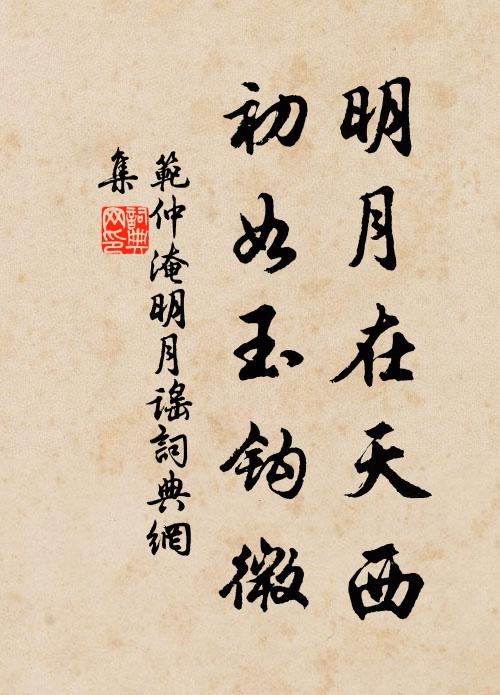 明月在天西
初如玉鈎微
範仲淹明月謠詞典網
集
詞典
网印